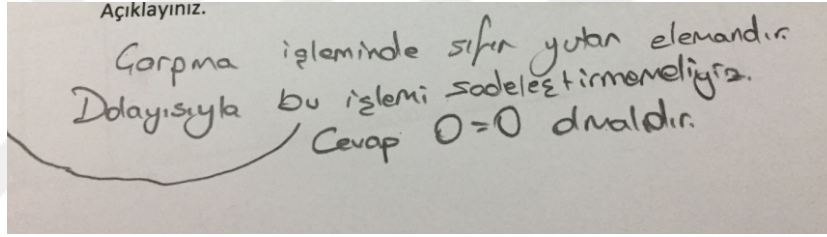 Açıklayınız.
Çarpma işleminde sıfır yutan elemandır.
Dolayısıyla bu işlemi sadeleştirmemeliyiz.
Cevap 0=0 olmalıdır.